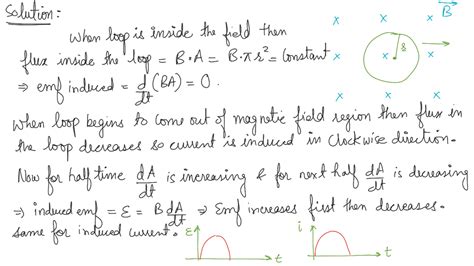 Solution:
When loop is inside the field then
flux inside the loop = B·A = B·πr² = Constant
⇒ emf induced = d/dt (BA) = 0.
When loop begins to come out of magnetic field region then flux in
the loop decreases so current is induced in Clockwise direction.
Now for half time dA/dt is increasing & for next half dA/dt is decreasing
⇒ induced emf = ε = B dA/dt ⇒ Emf increases first then decreases.
same for induced current.
ε t
i t
x x x B
x x
r
x x x